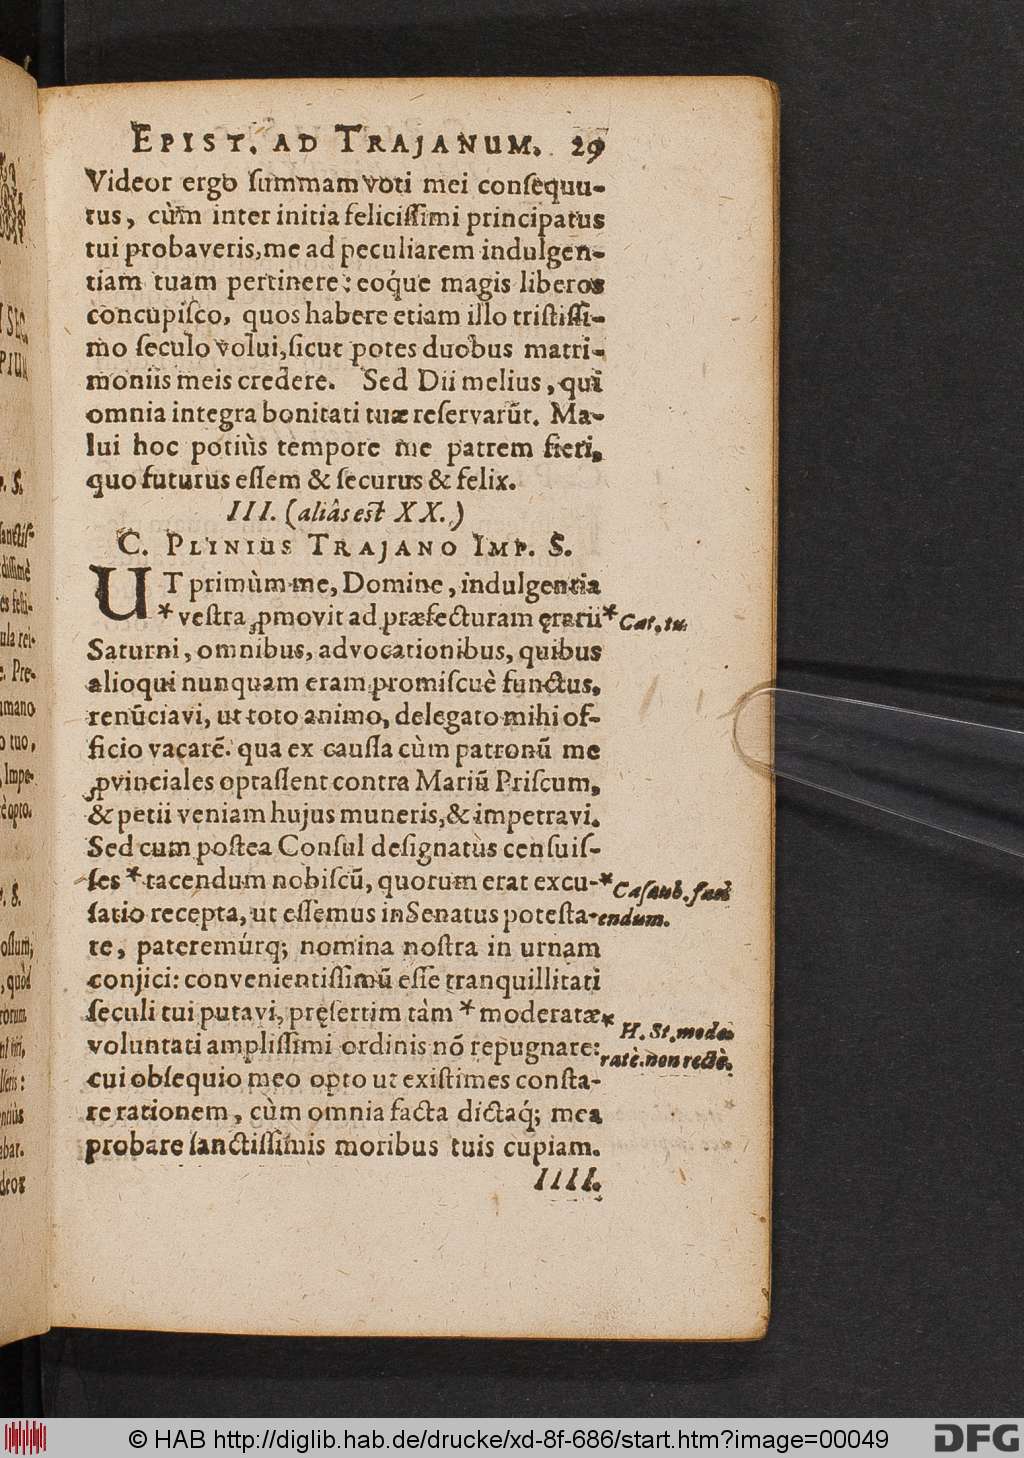 EPIST. AD TRAJANUM. 29
Videor ergo ſummam voti mei conſequu-
tus, cùm inter initia feliciſſimi principatus
tui probaveris, me ad peculiarem indulgen-
tiam tuam pertinere: eoq́ue magis liberos
concupiſco, quos habere etiam illo triſtiſſi-
mo ſeculo volui, ſicut potes duobus matri-
moniis meis credere. Sed Dii melius, qui
omnia integra bonitati tuæ reſervarūt. Ma-
lui hoc potiùs tempore me patrem fieri,
quo futurus eſſem & ſecurus & felix.
III. (aliâs est XX.)
C. PLINIUS TRAJANO IMP. S.
UT primùm me, Domine, indulgentia
* veſtra ꝓmovit ad præfecturam ęrarii * Cat. tu.
Saturni, omnibus, advocationibus, quibus
alioqui nunquam eram promiſcuè functus.
renūciavi, ut toto animo, delegato mihi of-
ficio vacarē. qua ex cauſſa cùm patronū me
ꝓvinciales optaſſent contra Mariū Priſcum,
& petii veniam hujus muneris, & impetravi.
Sed cum poſtea Conſul deſignatùs cenſuiſ-
ſes * tacendum nobiſcū, quorum erat excu- * Caſaub.
ſatio recepta, ut eſſemus in Senatus poteſta- endum.
te, pateremúrq; nomina noſtra in urnam
conjici: convenientiſſimū eſſe tranquillitati
ſeculi tui putavi, pręſertim tàm * moderatæ * H. St. mode-
voluntati ampliſſimi ordinis nō repugnare: ratè. non rectè.
cui obſequio meo opto ut exiſtimes conſta-
re rationem, cùm omnia facta dictaq́; mea
probare ſanctiſſimis moribus tuis cupiam.
IIII.
© HAB http://diglib.hab.de/drucke/xd-8f-686/start.htm?image=00049
DFG